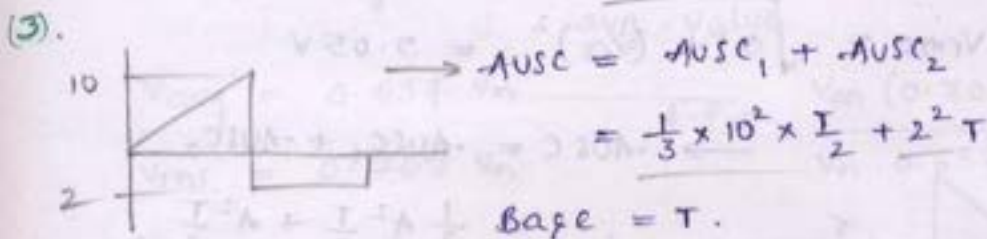 (3).
10
→ AUSC = AUSC₁ + AUSC₂
= 1/3 × 10² × T/2 + 2² T
2
Base = T.